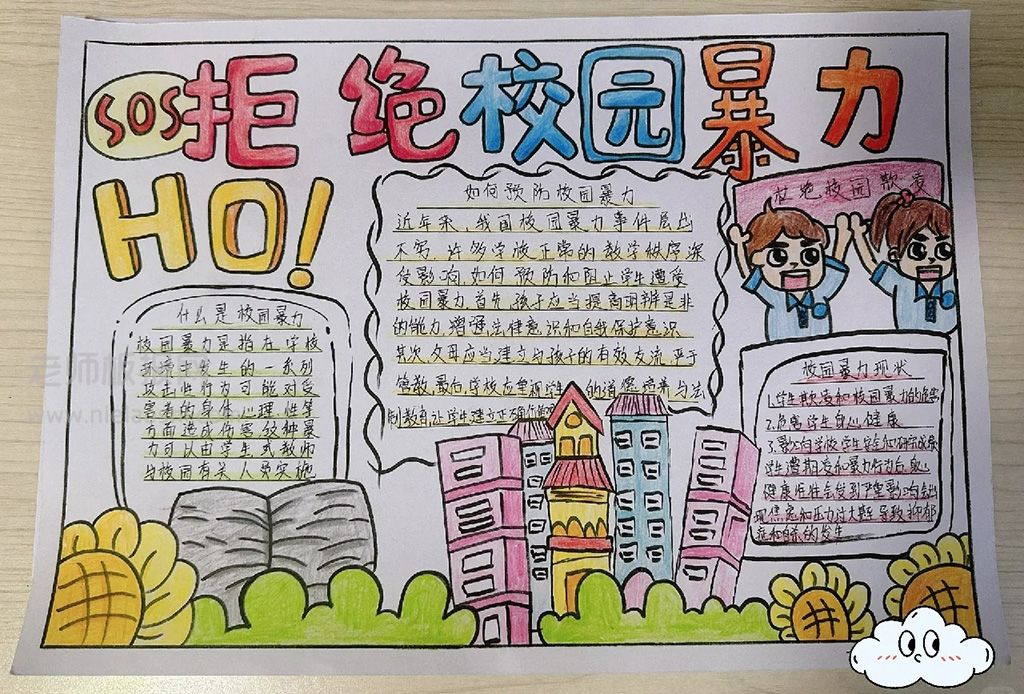 SOS 拒绝校园暴力
HO!
什么是校园暴力
校园暴力是指在学校
环境中发生的一系列
攻击性行为可能对受
害者的身体、心理、性等
方面造成伤害,这种暴
力可以由学生或教师
与校园有关人员实施
如何预防校园暴力
近年来,我国校园暴力事件层出
不穷,许多学校正常的教学秩序深
受影响,如何预防和阻止学生遭受
校园暴力,首先,孩子应当提高明辨是非
的能力,增强法律意识和自我保护意识
其次,父母应当建立与孩子的有效交流,严于
管教,最后,学校应重视学生的道德培养与法
制教育,让学生建立正确
杜绝校园欺凌
校园暴力现状
1.学生欺凌和校园暴力的危害
2.危害学生身心健康
3.影响学校学生安全和
学生遭期凌和暴力行为后,
健康 会受到严重影响会出
现焦虑和压力过大 导致抑郁
症和自杀的发生
老师板报网